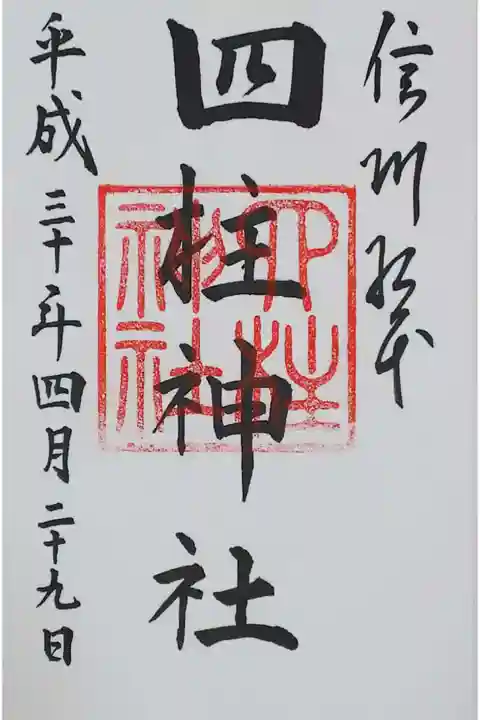 信州松本
四柱神社
平成三十年四月二十九日